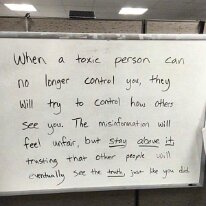 When a toxic person can
no longer control you, they
will try to control how others
see you. The misinformation will
feel unfair, but stay above it,
trusting that other people will
eventually see the truth, just like you did.